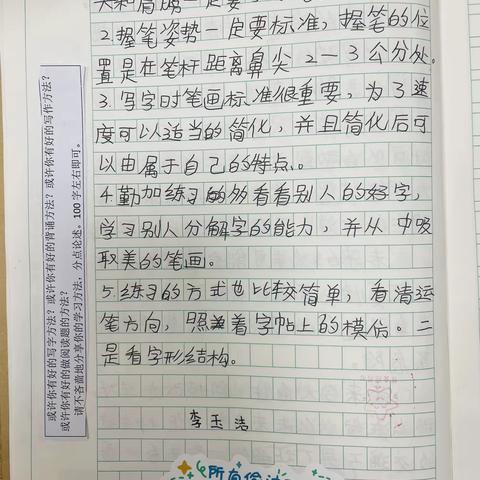 2.握笔姿势一定要标准，握笔的位
置是在笔杆距离鼻尖2－3公分处。
3.写字时笔画标准很重要，为了速
度可以适当的简化，并且简化后可
以由属于自己的特点。
4.勤加练习的多看看别人的好字，
学习别人分解字的能力，并从中吸
取美的笔画。
5.练习的方式也比较简单，看清运
笔方向，照着字帖上的模仿。二
是看字形结构。
李玉洁
或许你有好的写字方法？或许你有好的背诵方法？或许你有好的写作方法？
或许你有好的做阅读题的方法？
请不吝啬地分享你的学习方法，分点论述。100字左右即可。